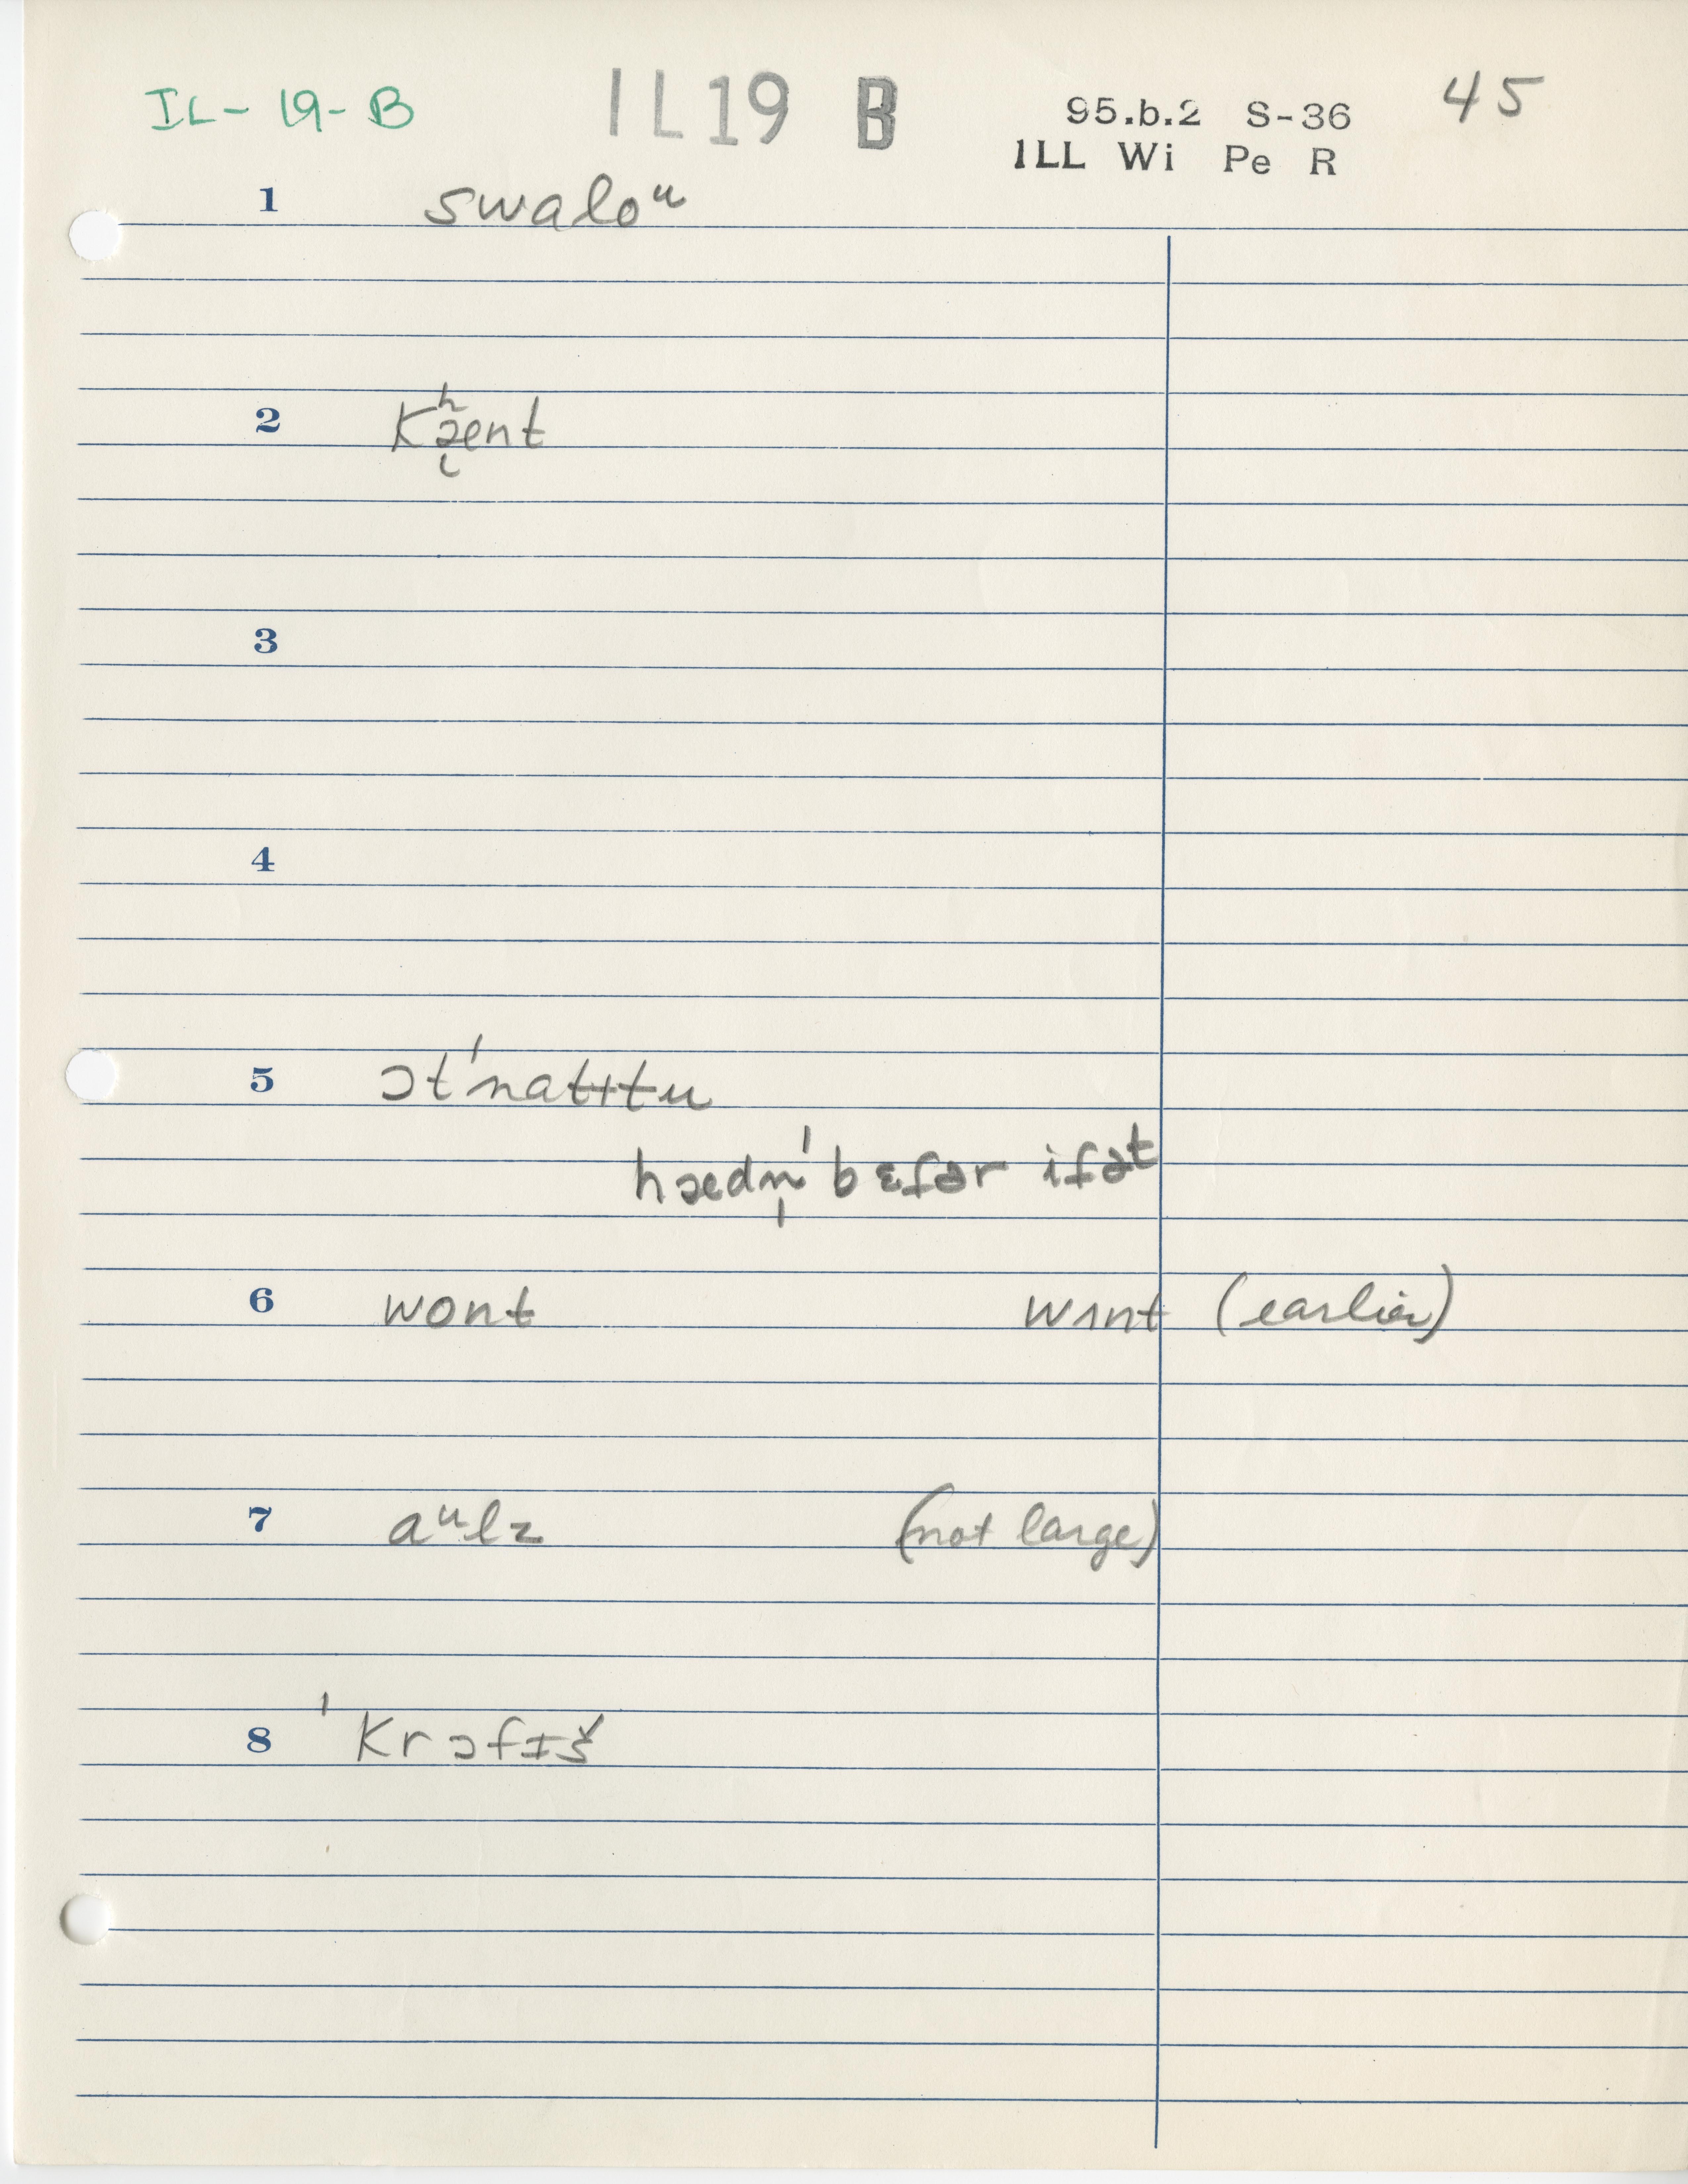 IL-19-B IL19 B 95.b.2 S-36 45
ILL Wi Pe R
1 swaloᵘ
2 kʰæ̨ent
3
4
5 ɔt'natɪtu
hædn̩' bɛfər ifət
6 wont wɪnt (earlier)
7 aᵘlz (not large)
8 'krɔfɪš